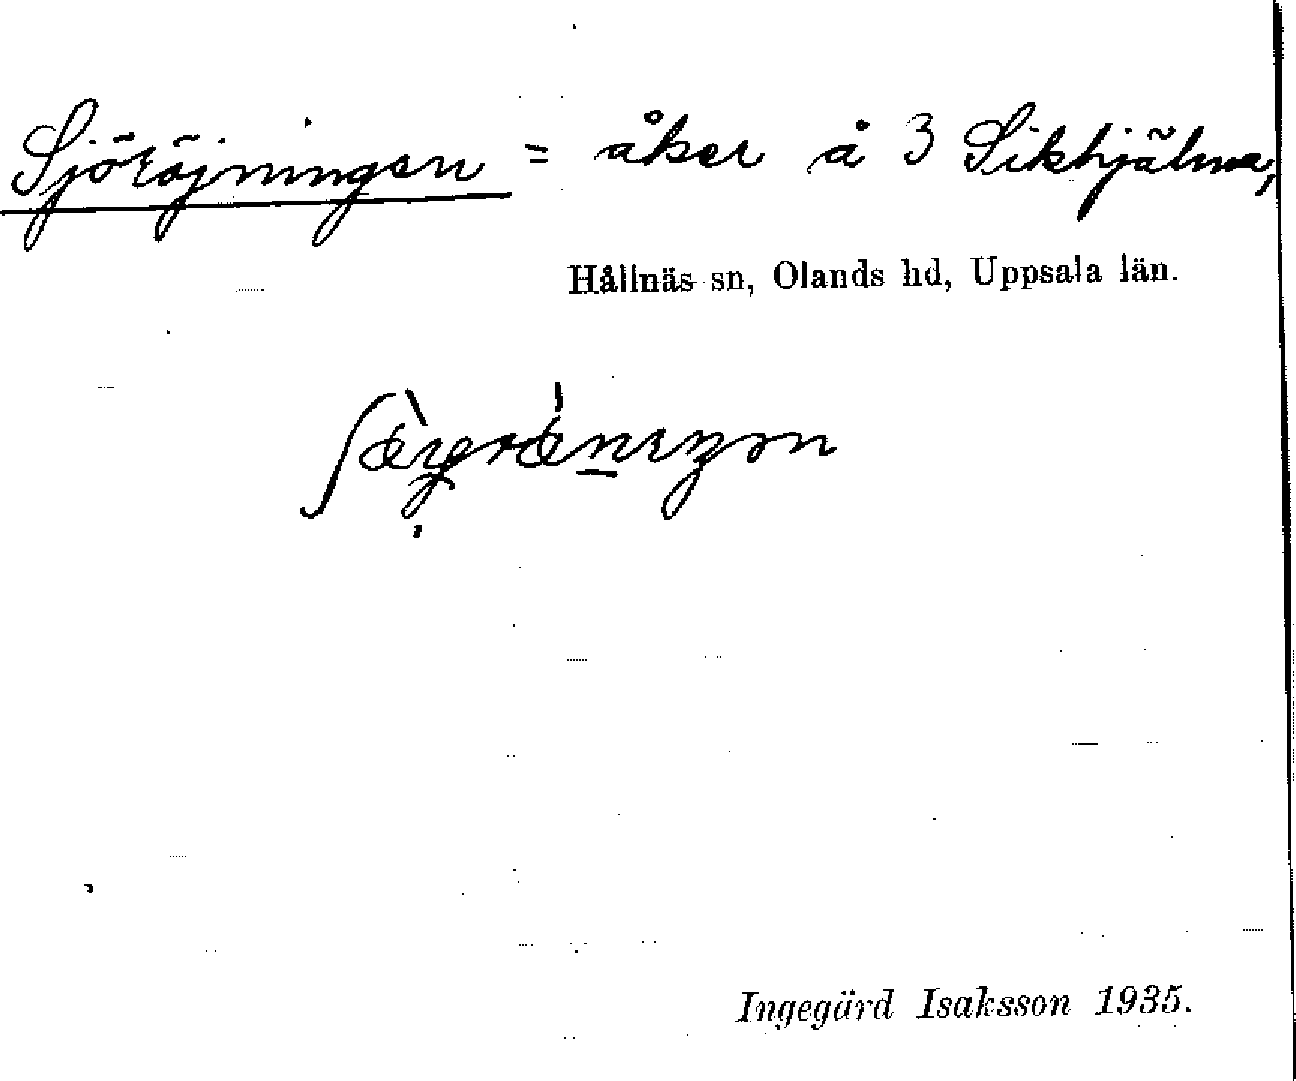 Sjöröjningen = åker å 3 Sikhjälma,
Hållnäs sn, Olands hd, Uppsala län.
Ingegärd Isaksson 1935.